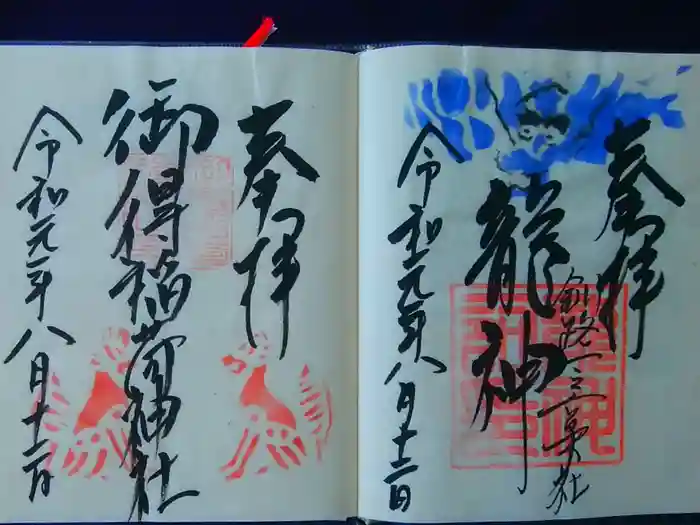 奉拝
釧路一之 社
龍神
令和元年八月十二日
奉拝
御得稲荷神社
令和元年八月十二日